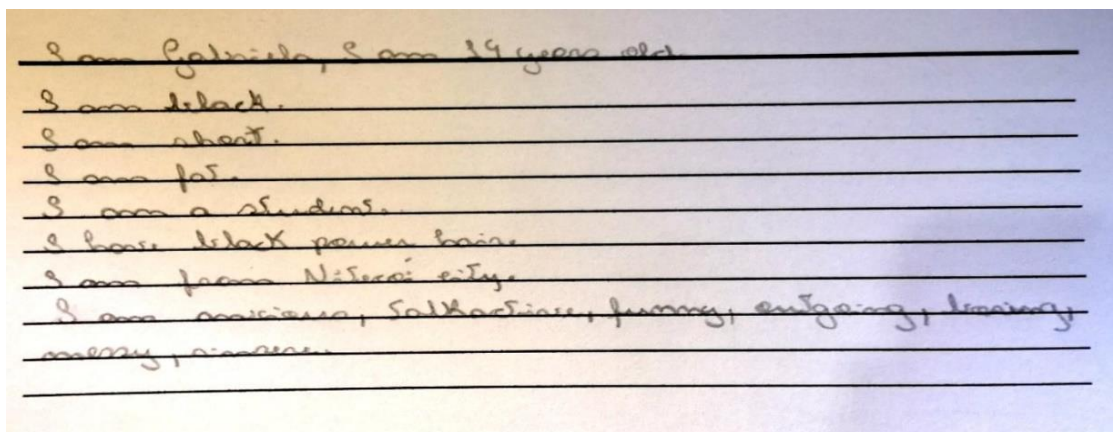 I am Gabriela, I am 14 years old.
I am black.
I am short.
I am fat.
I am a student.
I have black power hair.
I am from Niterói city.
I am anxious, talkative, funny, outgoing, loving,
messy, sincere.